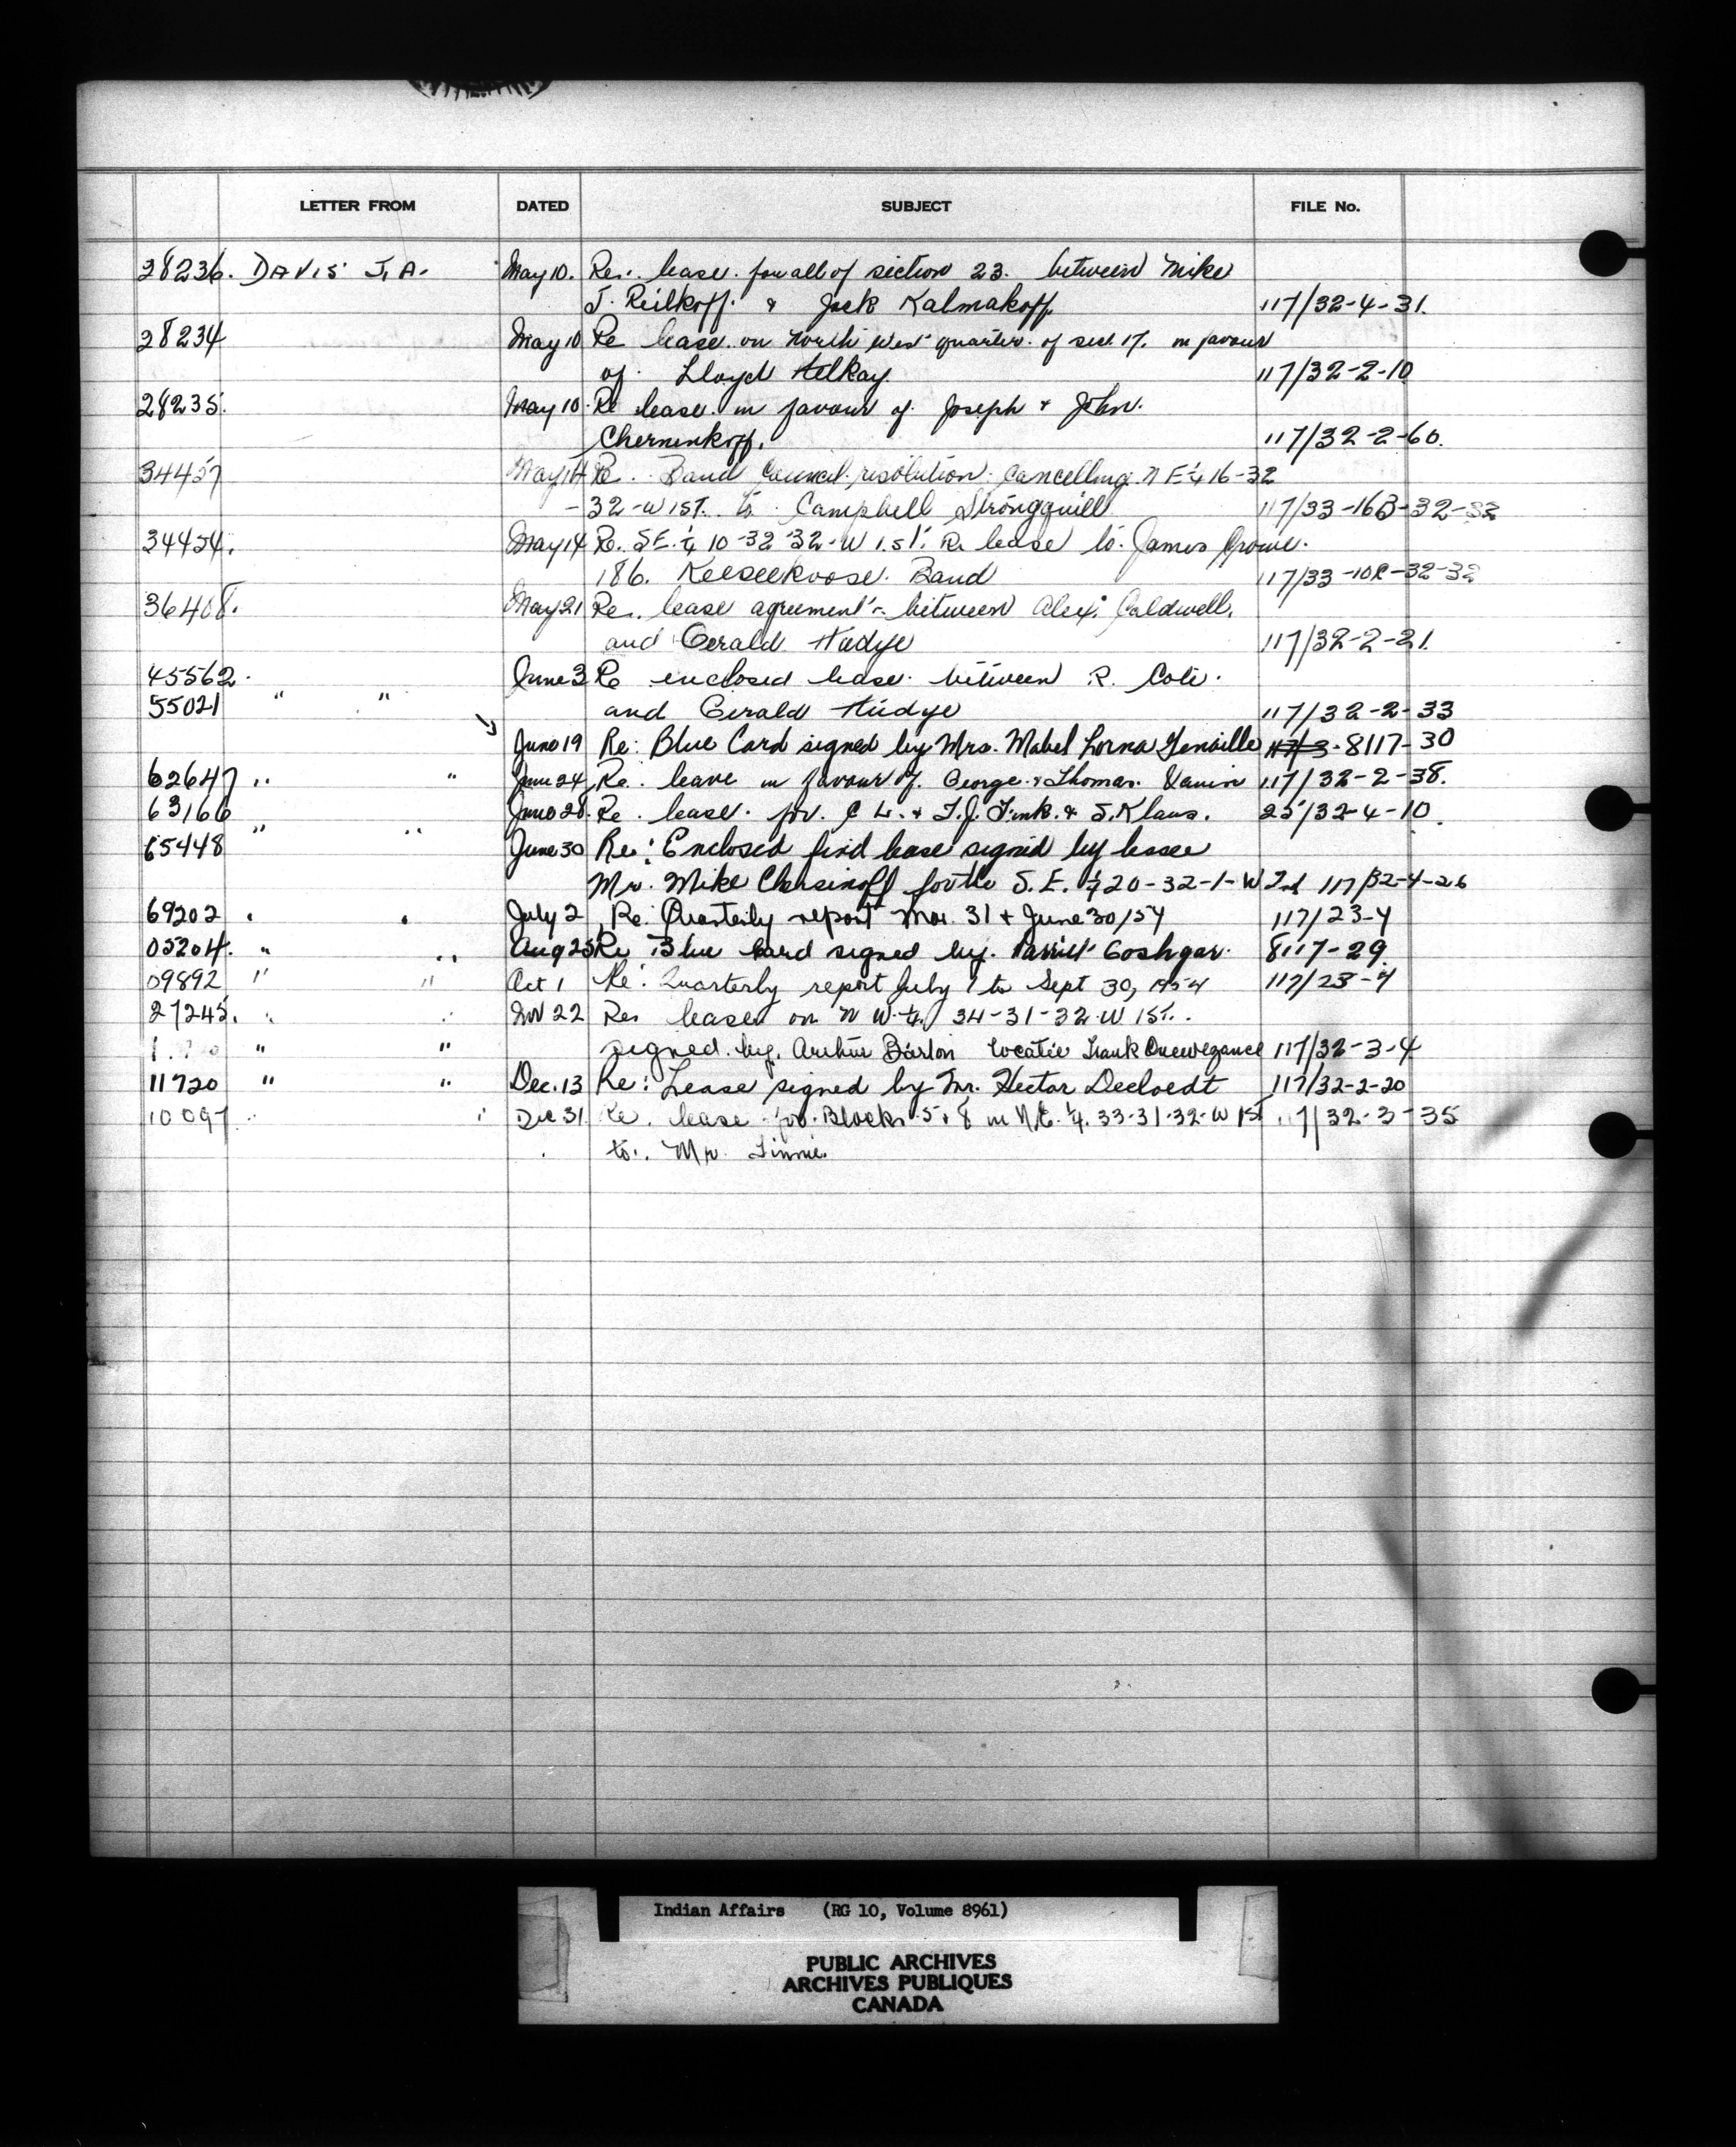 LETTER FROM DATED SUBJECT FILE No.
28236. DAVIS J.A. May 10. Re.. lease. for all of section 23. between Mike
J. Reilkoff. & Jack Kalmakoff 117/32-4-31.
28234 May 10 Re lease on North West quarter of sec. 17. in favour
of. Lloyd 117/32-2-10
28235. May 10. Re lease in favour of Joseph & John.
Chernenkoff. 117/32-2-60.
34457 May 14 Re. Band Council resolution cancelling N E ¼ 16-32
-32-W1ST. to Campbell Strongquill 117/33-16B-32-32
34454. May 14 Re. S.E. ¼ 10-32-32-W 1.st. Re lease to James
186. Keeseekoose Band 117/33-10R-32-32
36408. May 21 Re. lease agreement between Alex. Caldwell.
and Gerald Hudye 117/32-2-21.
45562. June 3 Re enclosed lease between R. Cote.
55021 " " and Gerald Hudye 117/32-2-33
June 19 Re: Blue Card signed by Mrs. Mabel Lorna Genaille 8117-30
62647 " " June 24 Re. leave in favour of George & Thomas 117/32-2-38.
63166 June 28. Re. lease. for. C L. & T.J. Fink. & S. Klaus. 25/32-4-10.
65448 " " June 30 Re: Enclosed find lease signed by lessee
Mr. Mike for the S.E. ¼ 20-32-1-W 2nd 117/32-4-26
69202 " " July 2 Re: Quarterly report Mar. 31 & June 30/54 117/23-4
05204. " " Aug 25 Re Blue Card signed by. Goshgar. 8117-29
09892 " " Oct 1 Re: Quarterly report July 1 to Sept 30, 1954 117/23-4
27245. " " Nov 22 Re lease on N W. ¼. 34-31-32-W 1ST..
" " signed. by. Arthur Barton locatee Frank 117/32-3-4
11720 " " Dec. 13 Re: Lease signed by Mr. Hector Decloedt 117/32-2-20
10097 " " Dec 31. Re. lease for Blocks 5 & 8 in N.E. ¼. 33-31-32-W 1st 117/32-3-35
to.. Mr.
Indian Affairs (RG 10, Volume 8961)
PUBLIC ARCHIVES
ARCHIVES PUBLIQUES
CANADA